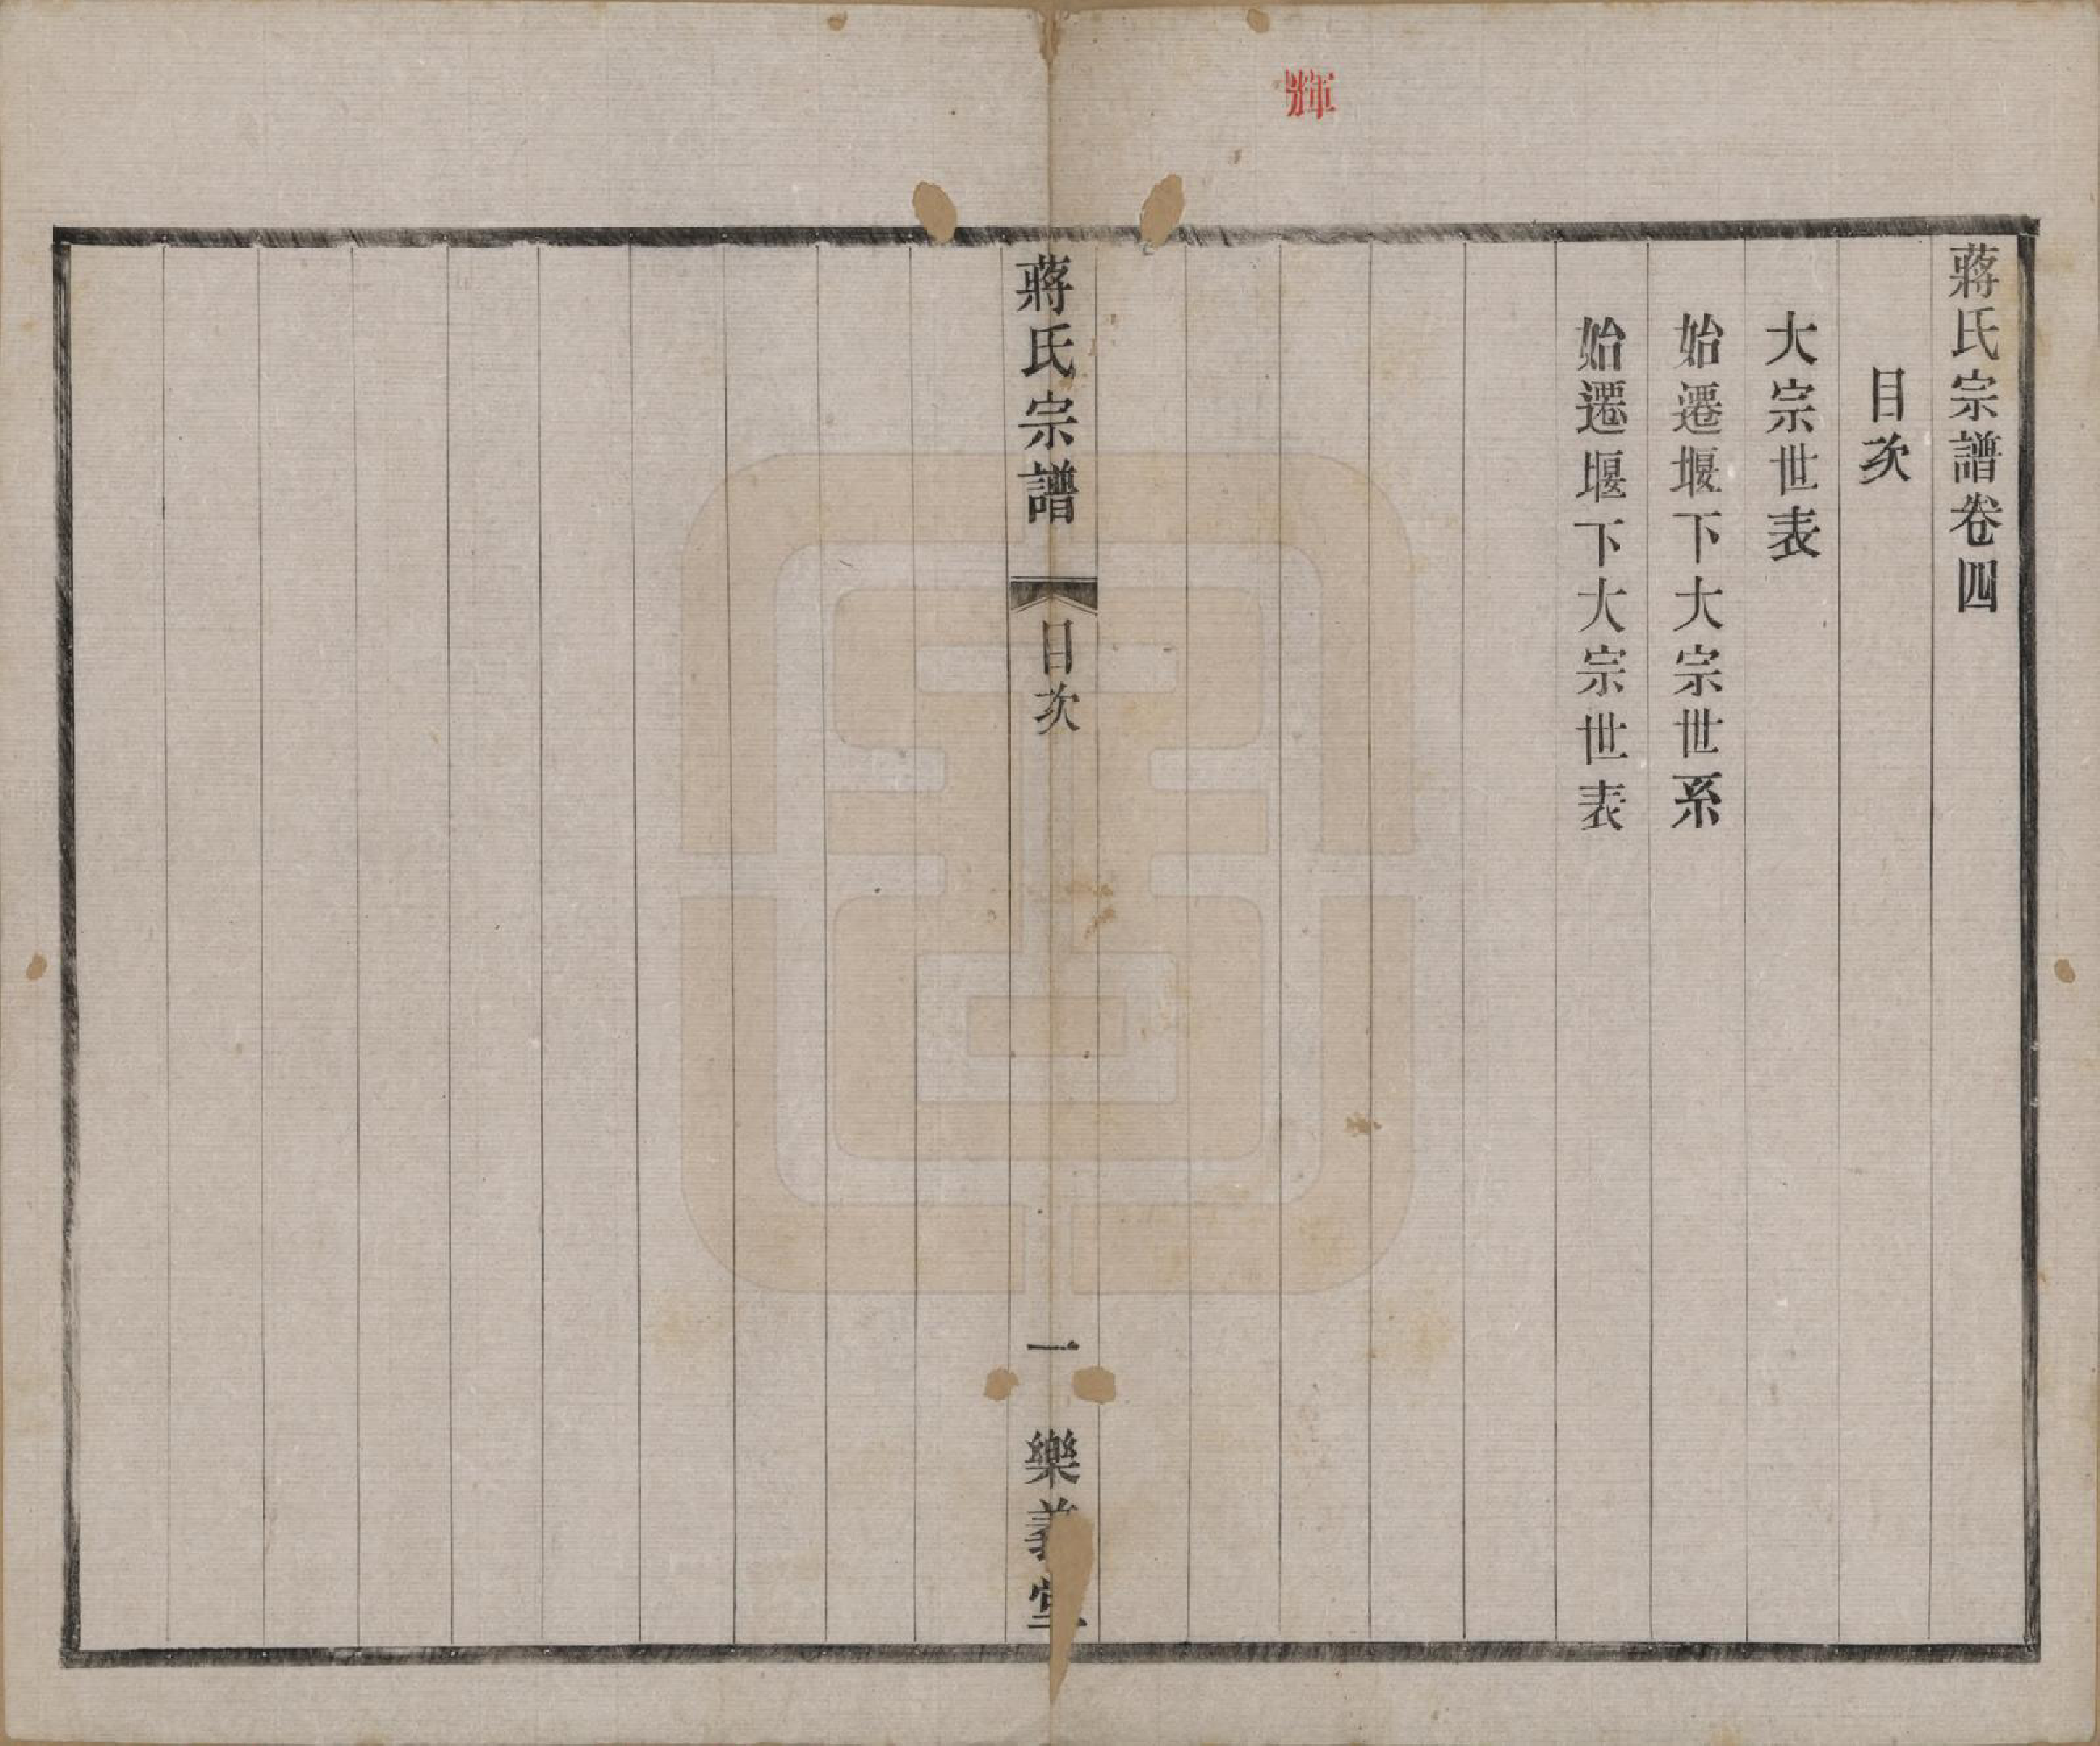 輝
蔣氏宗譜卷四
目次
大宗世表
始遷堰下大宗世系
始遷堰下大宗世表
蔣氏宗譜
目次
一
樂義堂